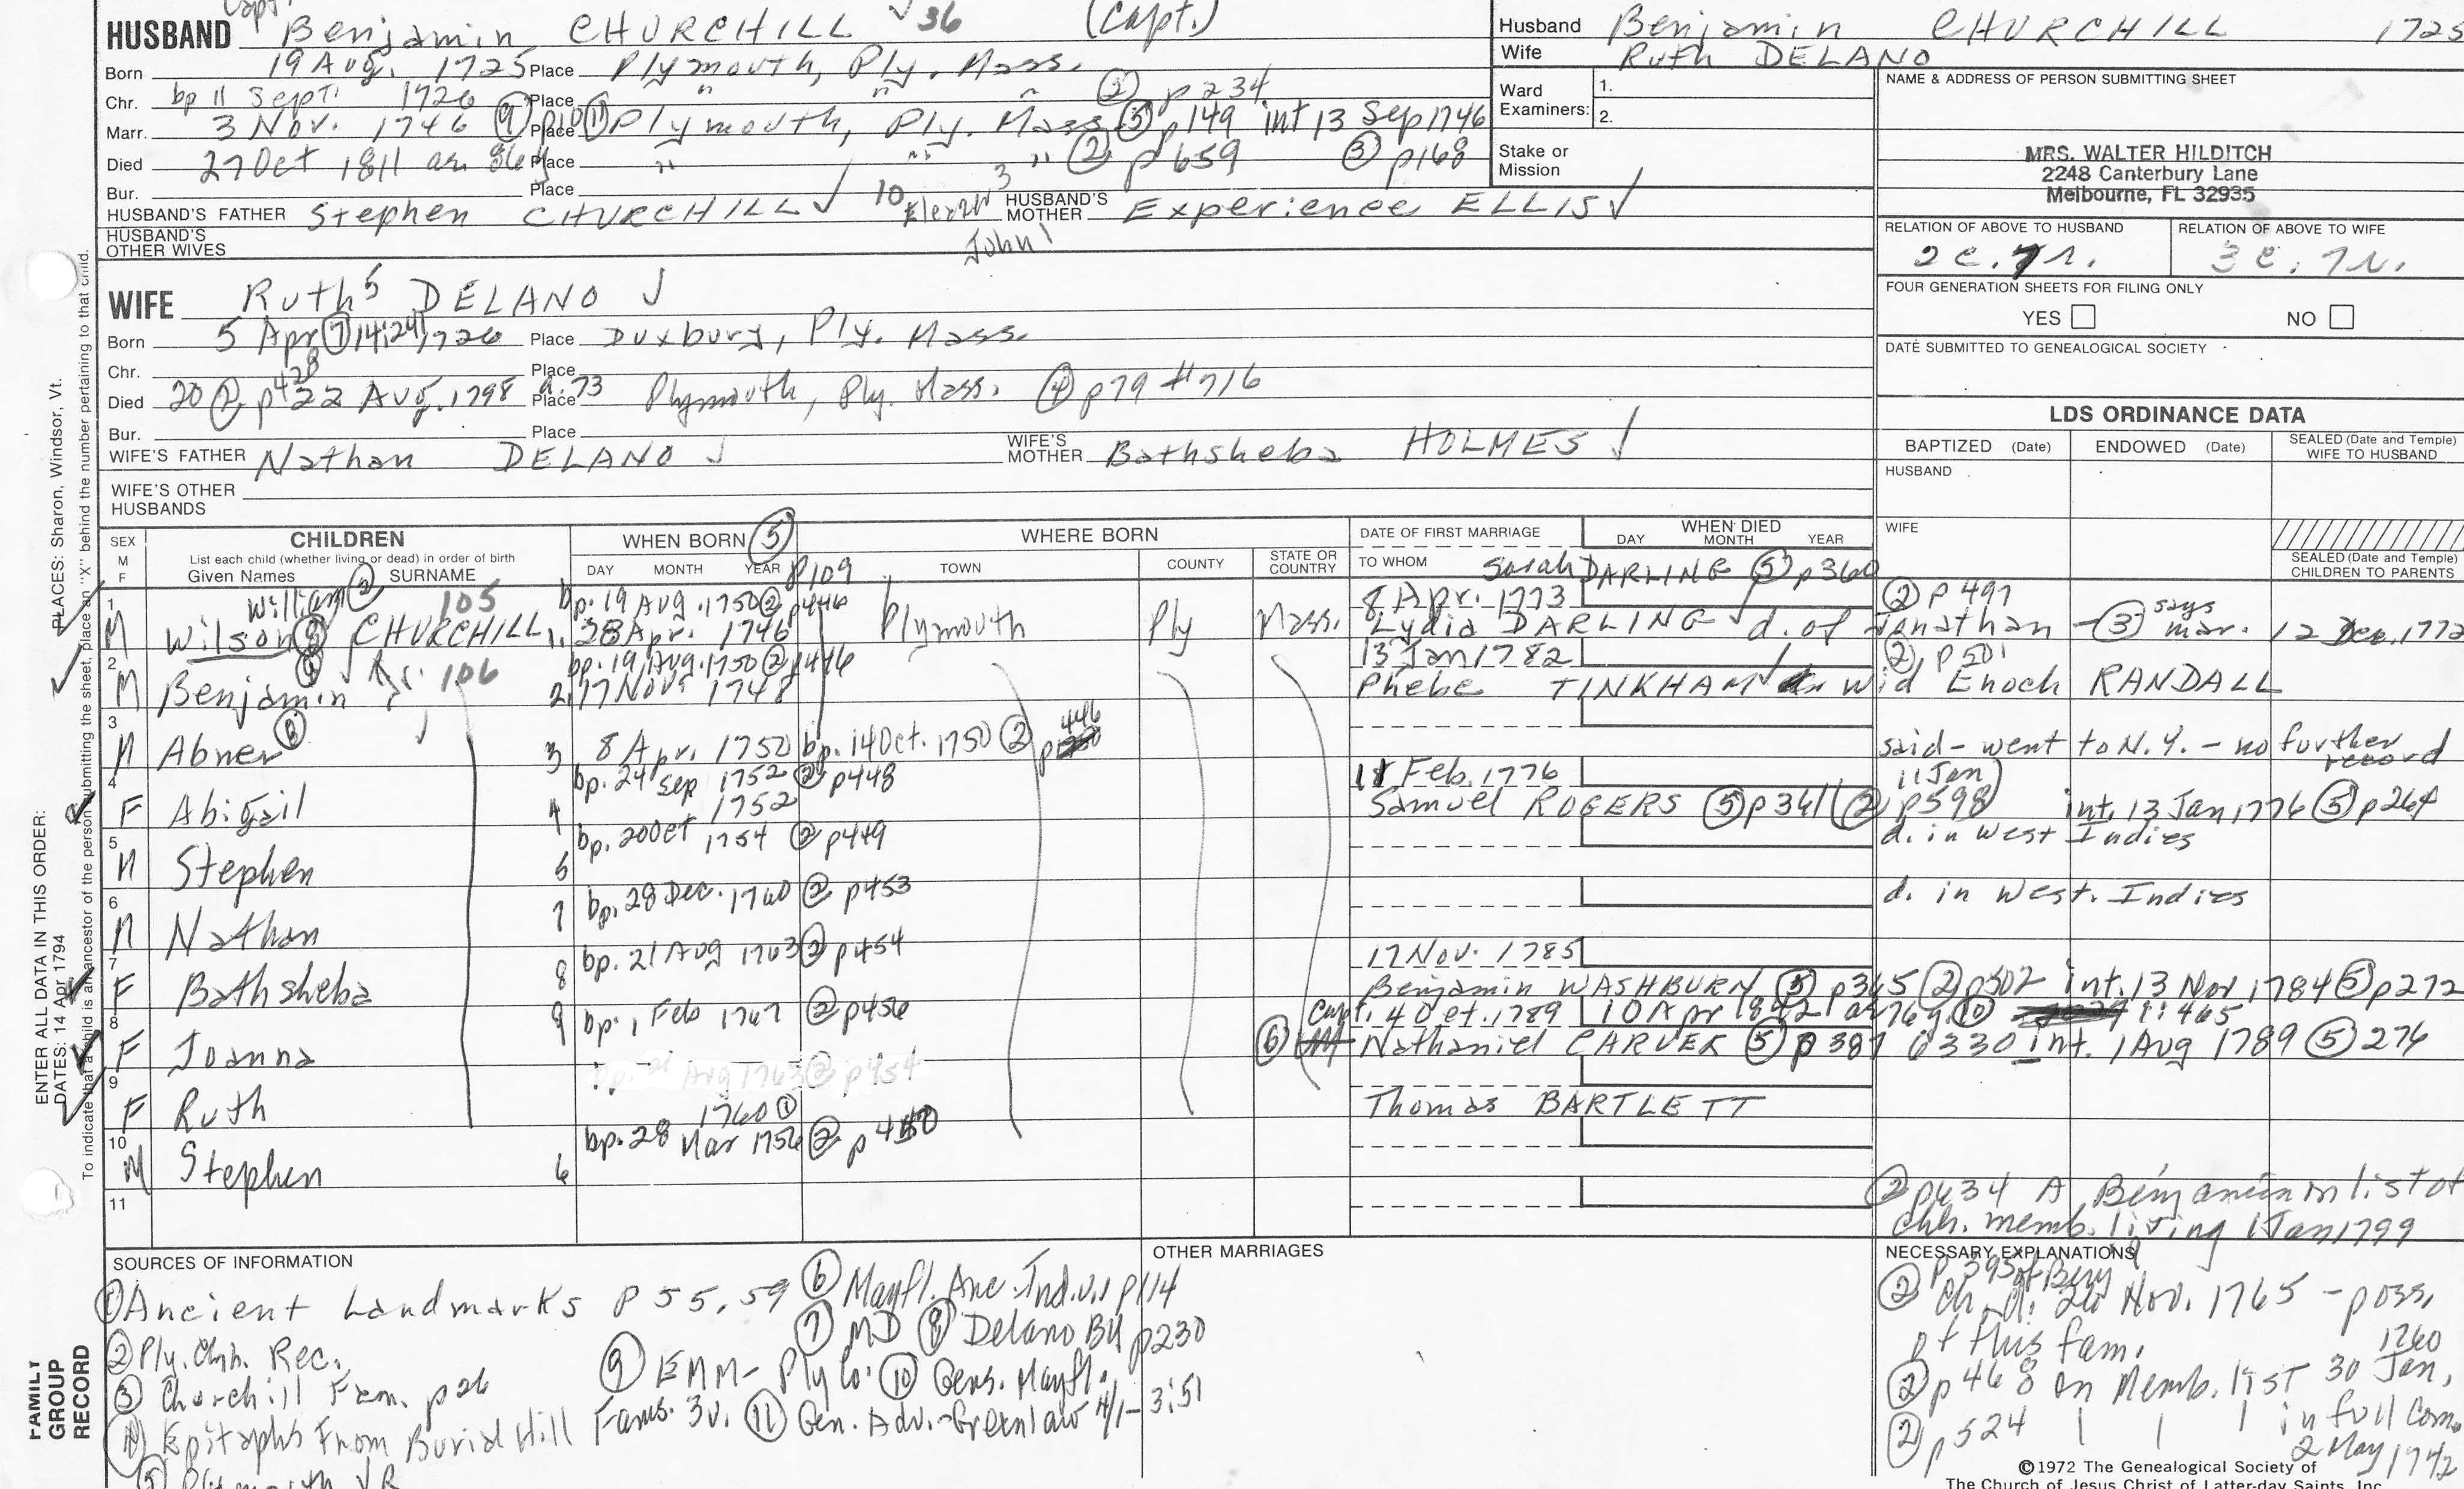 Capt.
HUSBAND Benjamin CHURCHILL √ 36 (Capt.)
Born 19 Aug. 1725 Place Plymouth, Ply. Mass.
Chr. bp 11 Sept. 1726 Place " " " ② p234
Marr. 3 Nov. 1746 ⑨ p10 ⑪ Place Plymouth, Ply. Mass ⑤ p149 int 13 Sep 1746
Died 27 Oct 1811 ae 86y Place " " " ② p659 ③ p168
Bur. Place
HUSBAND'S FATHER Stephen CHURCHILL √ 10 Eleazer 3 HUSBAND'S MOTHER Experience ELLIS √
HUSBAND'S OTHER WIVES John 1
WIFE Ruth 5 DELANO √
Born 5 Apr ⑦ 14:24 1726 Place Duxbury, Ply. Mass.
Chr. Place
Died 20 ② p428 22 Aug. 1798 a. 73 Place Plymouth, Ply. Mass. ④ p79 #716
Bur. Place
WIFE'S FATHER Nathan DELANO √ WIFE'S MOTHER Bathsheba HOLMES √
WIFE'S OTHER HUSBANDS
Husband Benjamin CHURCHILL 1725
Wife Ruth DELANO
Ward Examiners: 1.
2.
Stake or Mission
NAME & ADDRESS OF PERSON SUBMITTING SHEET
MRS. WALTER HILDITCH
2248 Canterbury Lane
Melbourne, FL 32935
RELATION OF ABOVE TO HUSBAND RELATION OF ABOVE TO WIFE
2 c. 7 r. 3 c. 7 r.
FOUR GENERATION SHEETS FOR FILING ONLY
YES NO
DATE SUBMITTED TO GENEALOGICAL SOCIETY
LDS ORDINANCE DATA
BAPTIZED (Date) ENDOWED (Date) SEALED (Date and Temple) WIFE TO HUSBAND
HUSBAND
WIFE
SEALED (Date and Temple) CHILDREN TO PARENTS
SEX M F CHILDREN WHEN BORN ⑤ WHERE BORN DATE OF FIRST MARRIAGE WHEN DIED
List each child (whether living or dead) in order of birth
Given Names SURNAME DAY MONTH YEAR p109 TOWN COUNTY STATE OR COUNTRY TO WHOM DAY MONTH YEAR
Sarah DARLING ⑤ p360
1 William ② 105 bp. 19 Aug. 1750 ② p446 8 Apr. 1773 ② p497
M Wilson CHURCHILL 1. 28 Apr. 1746 Plymouth Ply Mass. Lydia DARLING √ d. of Jonathan - ③ says mar. 12 Dec. 1772
2 bp. 19 Aug. 1750 ② p446 13 Jan 1782 ② p501
M Benjamin 106 2. 17 Nov. 1748 Phebe TINKHAM wid Enoch RANDALL
3
M Abner ⑧ 3 8 Apr. 1750 bp. 14 Oct. 1750 ② p446 said - went to N.Y. - no further record
4 bp. 24 Sep 1752 ② p448 18 Feb. 1776 11 Jan
F Abigail 4 1752 Samuel ROGERS ⑤ p361 ② p598 int. 13 Jan 1776 ⑤ p264
5 bp. 20 Oct 1754 ② p449 d. in West Indies
M Stephen 5
6 bp. 28 Dec. 1760 ② p453 d. in West. Indies
M Nathan 7
7 bp. 21 Aug 1763 ② p454 17 Nov. 1785
F Bathsheba 8 Benjamin WASHBURN ⑤ p365 ② p502 int. 13 Nov 1784 ⑤ p272
8 bp. 1 Feb 1767 ② p456 Capt. 4 Oct. 1789 10 Apr 1842 ae 76 y. ⑩ i: 465
F Joanna 9 ⑥ Nathaniel CARVER ⑤ p 387 int. 1 Aug 1789 ⑤ 276
9
F Ruth 1760 ① Thomas BARTLETT
10 bp. 28 Mar 1756 ② p450
M Stephen 6
11
② p434 A Benjamin in list of
chh. memb. living 1 Jan 1799
SOURCES OF INFORMATION
① Ancient Landmarks P 55, 59
② Ply. Chh. Rec.
③ Churchill Fam. p26
④ Epitaphs From Burial Hill
⑤ Plymouth VR
⑥ Mayfl. Anc. Ind. v.1 p114
⑦ MD ⑧ Delano p230
⑨ EMM - Ply Co. ⑩ Gens. Mayfl.
Fams. 3v. ⑪ Gen. Adv. - Greenlaw 4/1 - 3:51
OTHER MARRIAGES
NECESSARY EXPLANATIONS
② p395 of Benj
Ch. d. 26 Nov. 1765 - poss.
of this fam.
② p468 on Memb. list 30 Jan, 1760
② p524 in full Com.
2 May 1742
©1972 The Genealogical Society of
The Church of Jesus Christ of Latter-day Saints, Inc.
ENTER ALL DATA IN THIS ORDER:
DATES: 14 Apr 1794 PLACES: Sharon, Windsor, Vt.
To indicate that a child is an ancestor of the person submitting the sheet, place an "X" behind the number pertaining to that child.
FAMILY
GROUP
RECORD